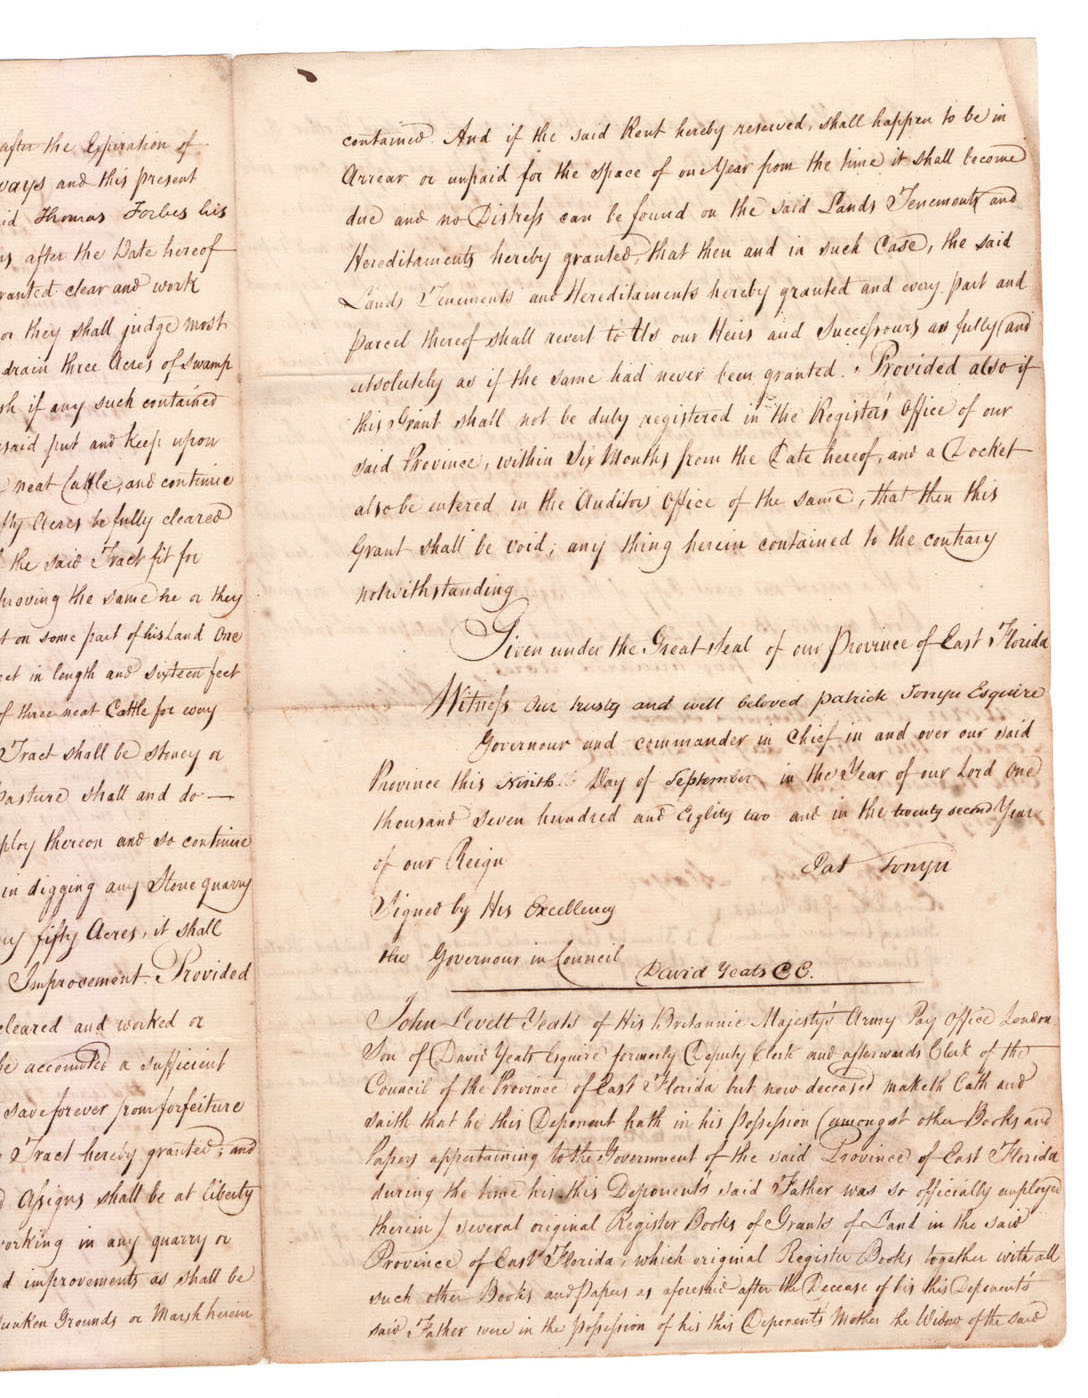 after the Expiration of
ways and this present
id Thomas Forbes his
after the Date hereof
ranted clear and work
or they shall judge most
drain three Acres of Swamp
if any such contained
said put and keep upon
neat Cattle, and continue
fty Acres be fully cleared
the said Tract fit for
proving the same he or they
on some part of his Land One
eet in length and sixteen feet
of three neat Cattle for every
Tract shall be stoney or
Pasture shall and do —
ploy thereon and so continue
in digging any Stone quarry
ny fifty Acres, it shall
Improvement. Provided
cleared and worked or
be accounted a sufficient
save forever from forfeiture
Tract hereby granted; and
Assigns shall be at liberty
orking in any quarry or
d improvements as shall be
unken Grounds or Marsh herein
contained. And if the said Rent hereby reserved, shall happen to be in
Arrear or unpaid for the space of one Year from the time it shall become
due and no Distress can be found on the said Lands Tenements and
Hereditaments hereby granted, that then and in such Case, the said
Lands Tenements and Hereditaments hereby granted and every part and
parcel thereof shall revert to Us our Heirs and Successours as fully and
absolutely as if the same had never been granted. Provided also if
this Grant shall not be duly registered in the Register's Office of our
said Province, within Six Months from the Date hereof, and a Docket
also be entered in the Auditors Office of the same, that then this
Grant shall be void; any thing herein contained to the contrary
notwithstanding
Given under the Great Seal of our Province of East Florida
Witness Our trusty and well beloved Patrick Tonyn Esquire
Governour and commander in Chief in and over our said
Province this Ninth Day of September in the Year of our Lord One
thousand seven hundred and Eighty two and in the twenty second Year
of our Reign
Pat Tonyn
Signed by His Excellency
the Governour in Council
David Yeats C C.
John Levett Yeats of His Britannic Majesty's Army Pay Office London
Son of David Yeats Esquire formerly Deputy Clerk and afterwards Clerk of the
Council of the Province of East Florida but now deceased maketh Oath and
saith that he this Deponent hath in his Possession (amongst other Books and
Papers appertaining to the Government of the said Province of East Florida
during the time his this Deponents said Father was so officially employed
therein) several original Register Books of Grants of Land in the said
Province of East Florida, which original Register Books together with all
such other Books and Papers as aforesaid after the Decease of his this Deponent's
said Father were in the possession of his this Deponents Mother he Widow of the said